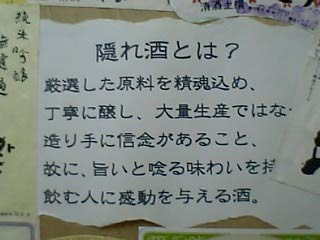 隠れ酒とは？
厳選した原料を精魂込め、
丁寧に醸し、大量生産ではな
造り手に信念があること、
故に、旨いと唸る味わいを持
飲む人に感動を与える酒。
清酒主権
純米吟醸